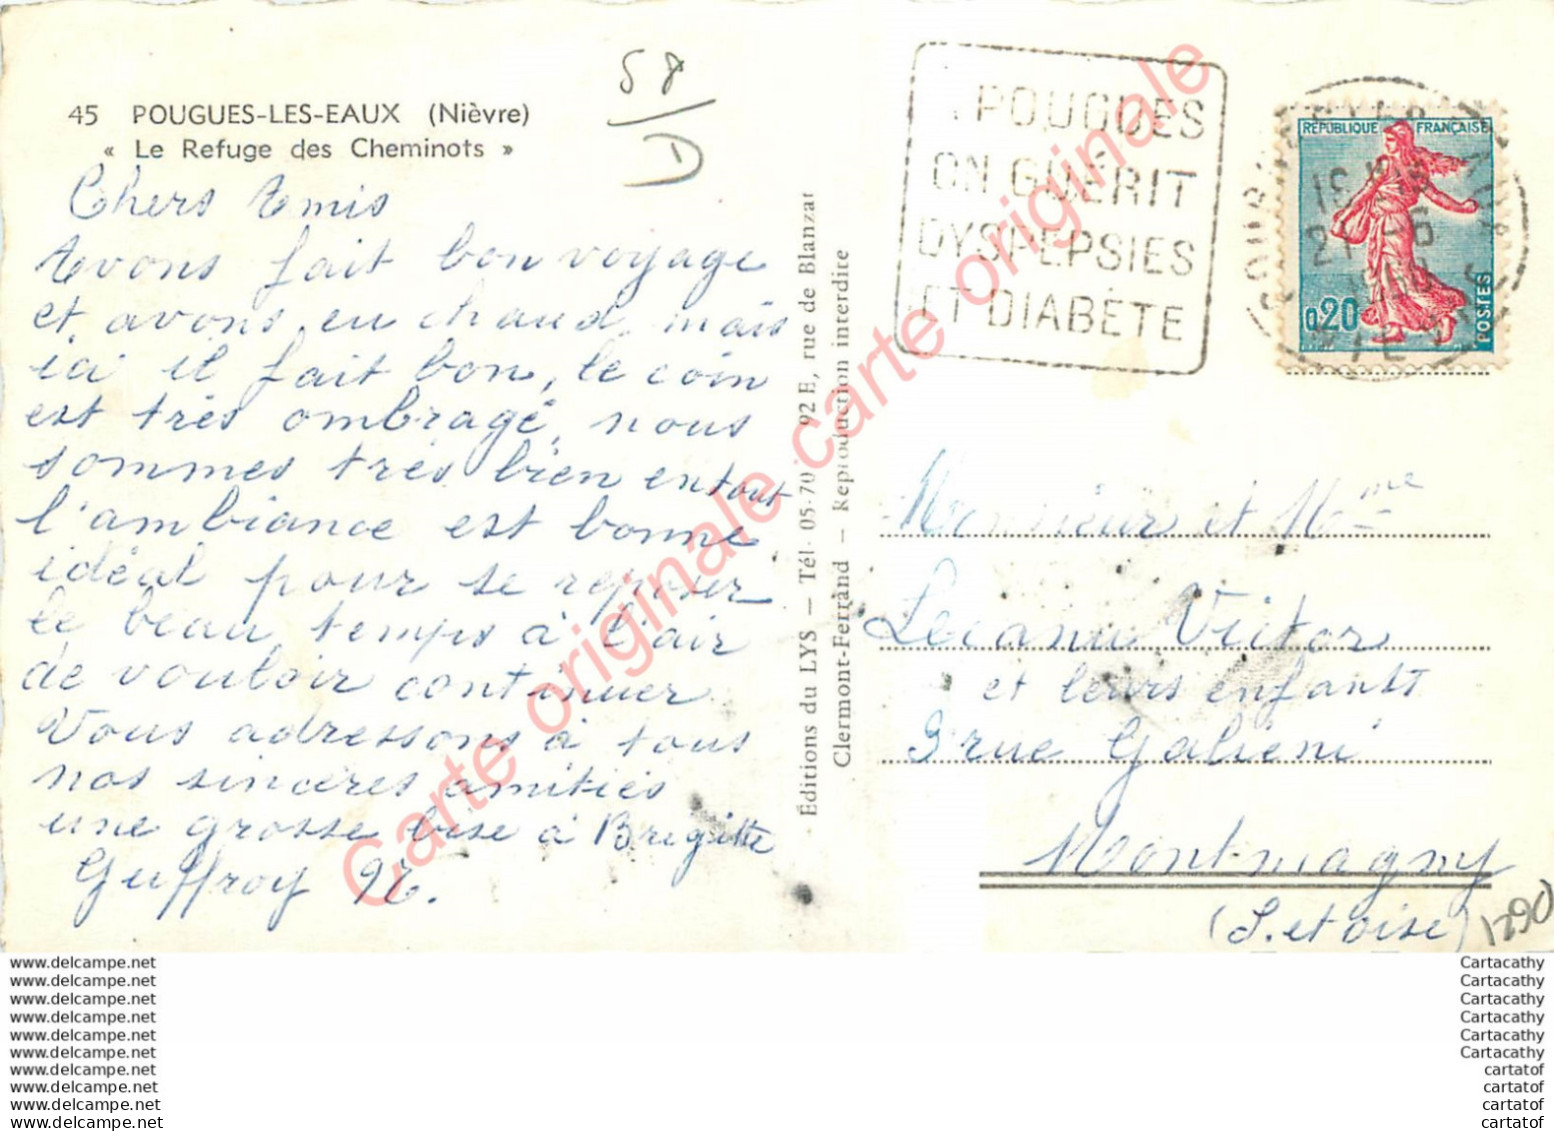 45 POUGUES-LES-EAUX (Nièvre)
« Le Refuge des Cheminots »
58
D
Chers Amis
Avons fait bon voyage
et avons eu chaud, mais
ici il fait bon, le coin
est très ombragé, nous
sommes très bien en tout
l'ambiance est bonne
idéal pour se reposer
le beau temps à l'air
de vouloir continuer
Vous adressons à tous
nos sincères amitiés
une grosse bise à Brigitte
Guffroy
Éditions du LYS — Tél. 05-70 92 E, rue de Blanzat
Clermont-Ferrand — Reproduction interdite
POUGUES
ON GUÉRIT
DYSPEPSIES
ET DIABÈTE
RÉPUBLIQUE FRANÇAISE
0,20
POSTES
1960
Monsieur et Mme
Lecanu Victor
et leurs enfants
9 rue Galieni
Montmagny
(S. et oise)
1290
Carte originale carte originale carte originale
www.delcampe.net
www.delcampe.net
www.delcampe.net
www.delcampe.net
www.delcampe.net
www.delcampe.net
www.delcampe.net
www.delcampe.net
www.delcampe.net
www.delcampe.net
Cartacathy
Cartacathy
Cartacathy
Cartacathy
Cartacathy
Cartacathy
cartatof
cartatof
cartatof
cartatof